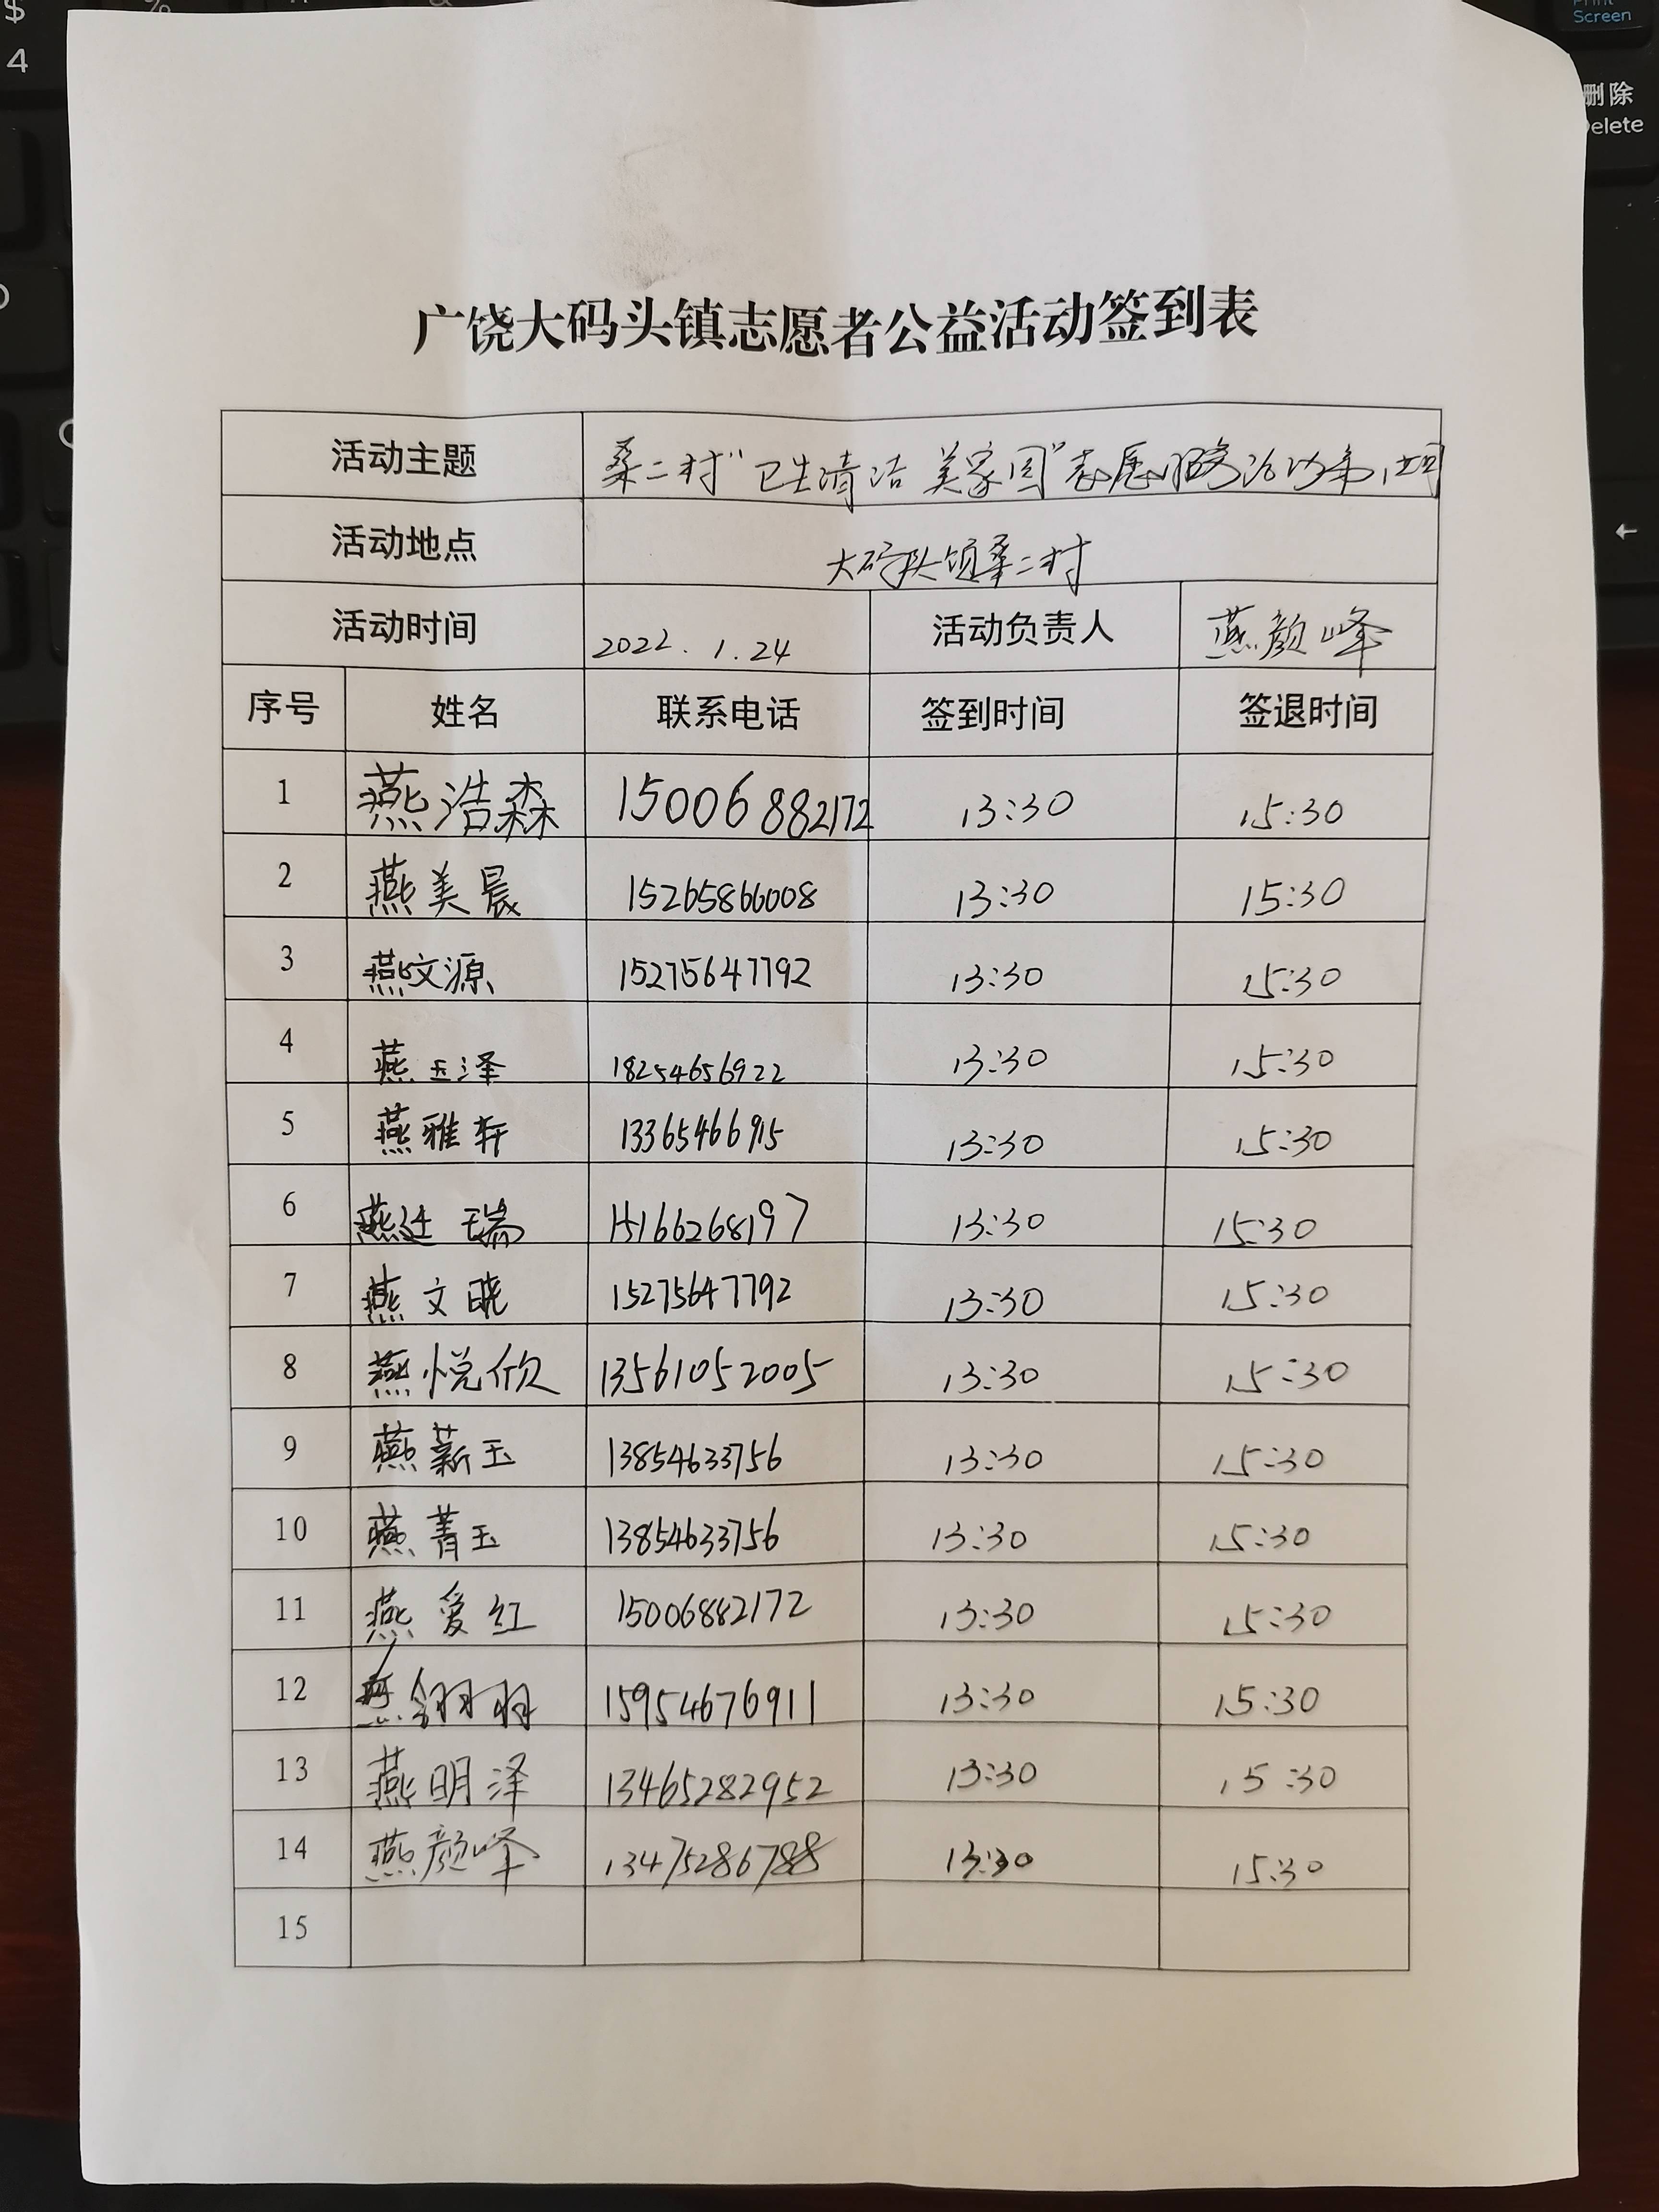 $
4
%
Print
Screen
删除
Delete
←
广饶大码头镇志愿者公益活动签到表
活动主题 桑二村“卫生清洁 美家园”志愿服务活动第1期
活动地点 大码头镇桑二村
活动时间 2022.1.24 活动负责人 燕颜峰
序号 姓名 联系电话 签到时间 签退时间
1 燕浩森 15006882172 13:30 15:30
2 燕美晨 15265866008 13:30 15:30
3 燕文源 15275647792 13:30 15:30
4 燕玉泽 18254656922 13:30 15:30
5 燕雅轩 13365466915 13:30 15:30
6 燕廷瑞 15166268197 13:30 15:30
7 燕文晓 15275647792 13:30 15:30
8 燕悦欣 13561052005 13:30 15:30
9 燕薪玉 13854633756 13:30 15:30
10 燕菁玉 13854633756 13:30 15:30
11 燕爱红 15006882172 13:30 15:30
12 燕翎羽 15954676911 13:30 15:30
13 燕明泽 13465282952 13:30 15:30
14 燕颜峰 13475286788 13:30 15:30
15